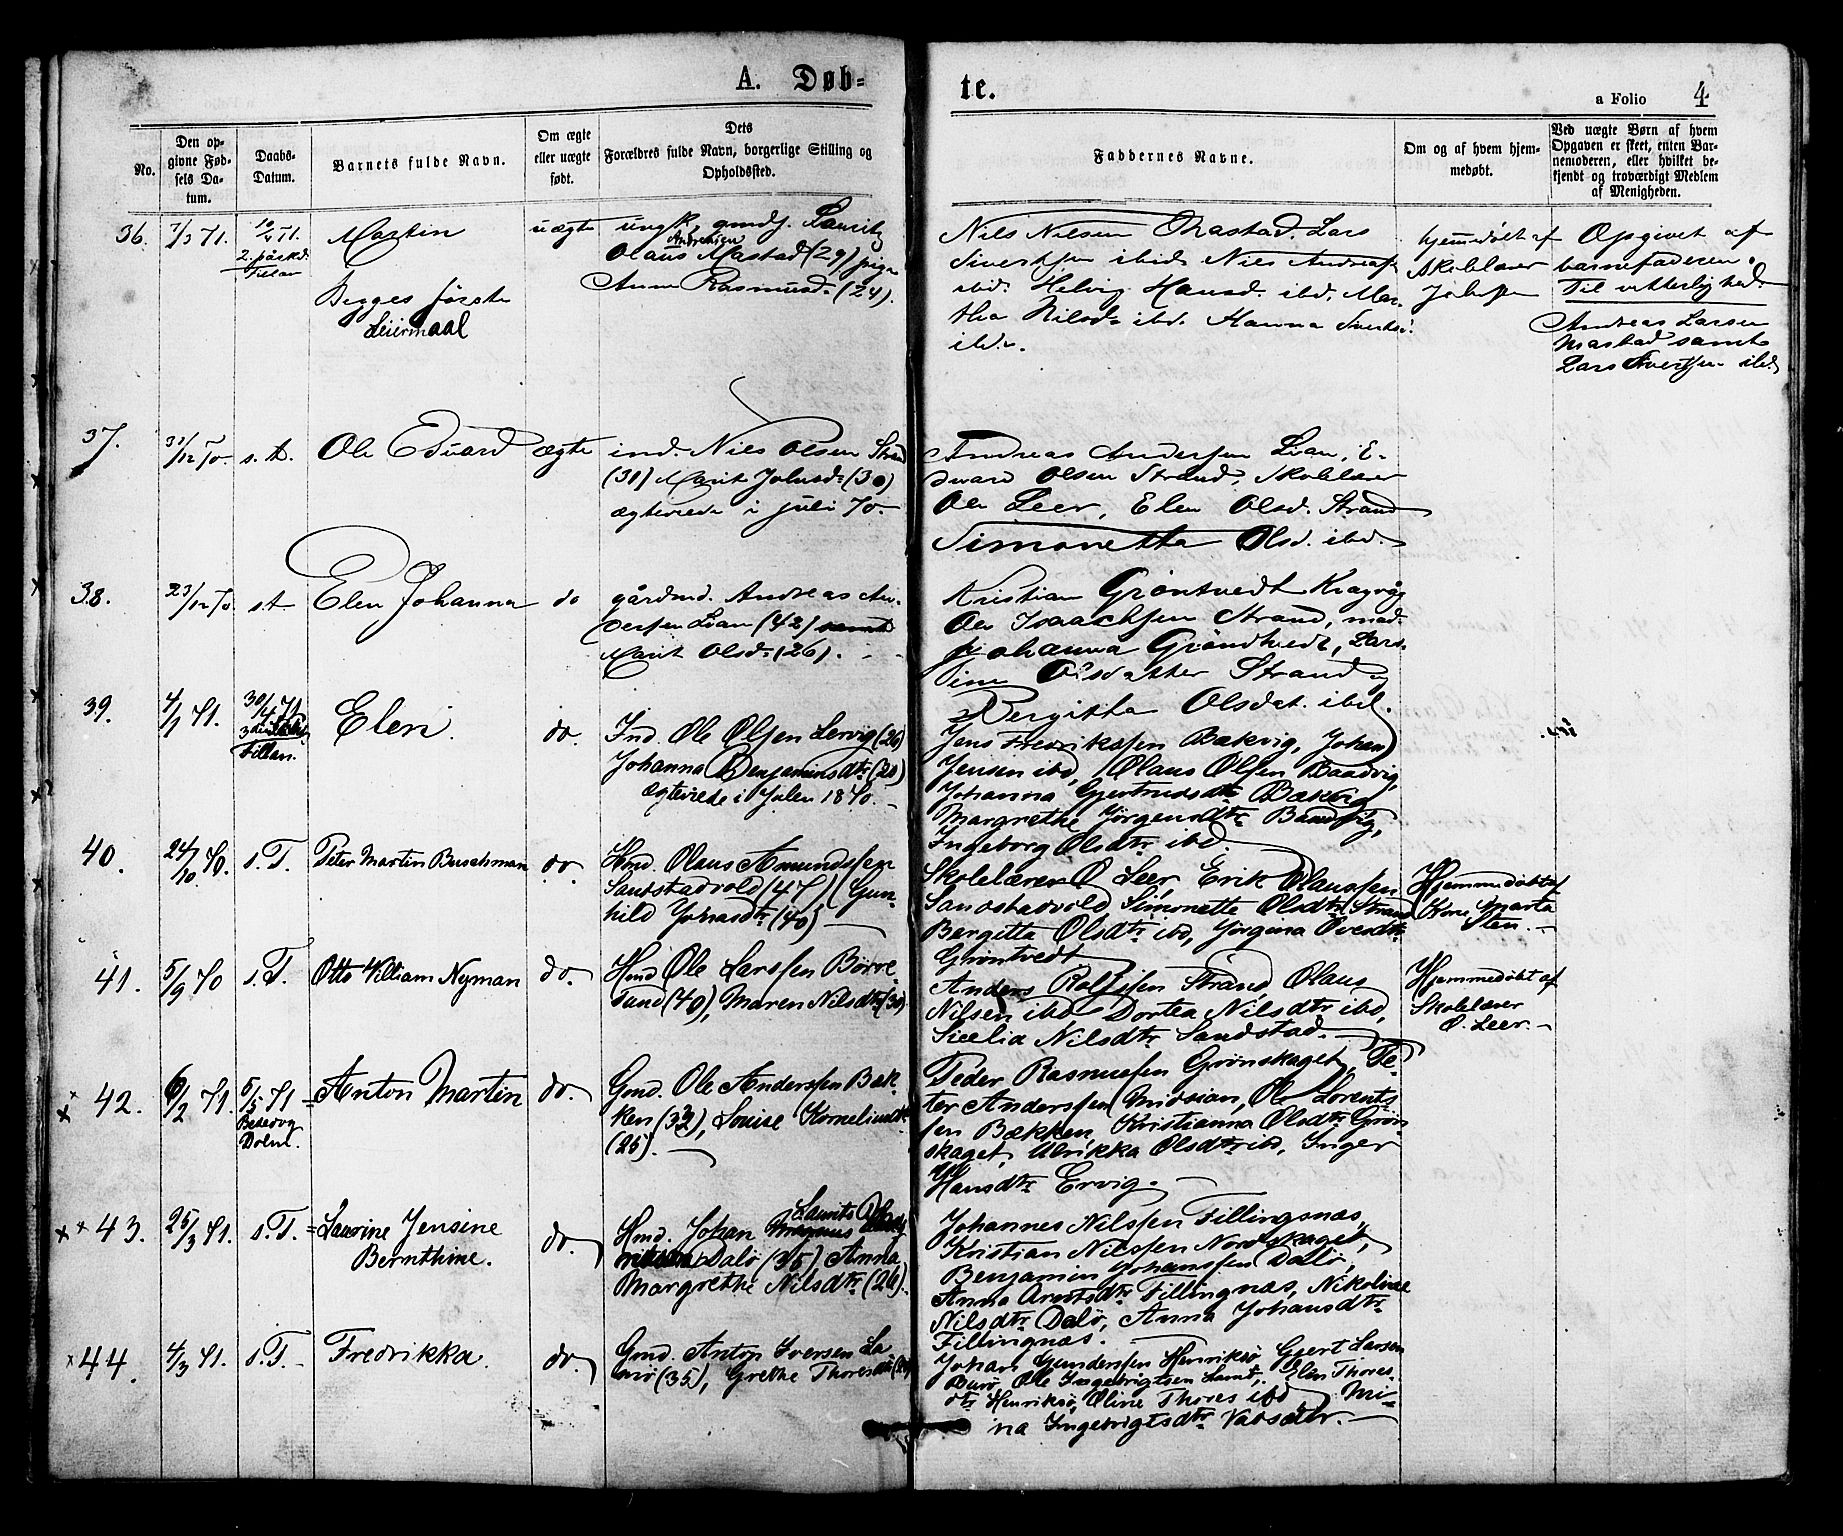 A. Døb-
te.
a Folio 4
No.
Den op-
givne Fød-
sels Da-
tum.
Daabs-
Datum.
Barnets fulde Navn.
Om ægte
eller uægte
født.
Dets
Forældres fulde Navn, borgerlige Stilling og
Opholdssted.
Faddernes Navne.
Om og af hvem hjem-
medøbt.
Ved uægte Børn af hvem
Opgaven er skeet, enten Bar-
nemoderen, eller hvilket be-
kjendt og troværdigt Medlem
af Menigheden.
36.
7/3 71.
10/4 71.
2. påskd.
Fillan
Martin
Begges første
Leiermaal
uægte
ungk. gmdf. Lauritz
Andreasen
Olaus Mastad (29) pige
Anne Rasmusd. (24).
Nils Nilsen Mastad. Lars
Sivertsen ibid. Nils Andreas
ibd. Helvig Hansd. ibd. Mar-
tha Nilsd. ibd. Hanna Siverts.
ibd.
hjemmedøbt af
skolelærer
Opgivet af
barnefaderen.
Til vitterlighed
Andreas Larsen
Mastad samt
Lars Sivertsen ibd.
37.
31/12 70.
s. t.
Ole Edvard
ægte
ind. Niels Olsen Strand
(30) Marit Johnsd. (30)
ægteviede i juli 70.
Andreas Andersen Lian, E-
dvard Olsen Strand, Skolelærer
Ole Leer, Elen Olsd. Strand
Simonetta Olsd. ibd.
38.
23/12 70.
s. t
Elen Johanna
do
gårdmd. Andreas An-
dersen Lian (42) samt
Marit Olsd. (26).
Kristian Gröntvedt Kragvåg
Ole Isaachsen Strand, mad.
Johanna Gröndtvedt, Lars-
sine Olsdatter Strand og
Bergitta Olsdat. ibd.
39.
4/1 71.
30/4 71.
Fillan.
Elen.
do.
Ind. Ole Olsen Lervig (26)
Johanna Benjaminsdtr. (20)
Ægteviede i Julen 1870.
Jens Fredriksen Bækvig, Johan
Jensen ibd, Olaus Olsen Baadvig,
Johanna Gjertrudsdtr. Bækvig
Margrethe Jörgensdtr. Baadvig,
Ingeborg Olsdtr. ibd.
40.
24/10 70.
s. T.
Peter Martin Buschman
do.
Hmd. Olaus Amundssen
Sandstadvold (47) Gun-
hild Johnsdtr. (40)
Skolelærer O Leer, Erik Olaussen
Sandstadvold Simonette Olsdtr. Strand
Bergitta Olsdtr. ibd, Jörgina Oversdtr.
Gröntvedt
Hjemmedöbt af
Kone Marta
Sten.
41.
5/9 70
s. T.
Otto William Nyman
do.
Hmd Ole Larssen Börre-
sand (40), Maren Nilsdtr (30).
Anders Rolfssen Strand Olaus
Nilsen ibd Dortea Nilsdtr. ibd,
Sicelia Nilsdtr. Sandstad.
Hjemmedöbt af
Skolelærer
O. Leer.
42.
6/2 71.
5/5 71
Bededag
Dolm.
Anton Martin
do.
Gmd. Ole Anderssen Bæk-
ken (32), Louise Kornelius dtr
(25).
Peder Rasmussen Grönskaget, Pe-
ter Anderssen Midsian, Ole Lorents-
sen Bækken, Kristianna Olsdtr. Grön-
skaget, Ulrikka Olsdtr. ibd, Inger
Hansdtr. Ervig.
43.
25/3 71.
s. T.
Laurine Jensine
Bernthine.
do.
Laurits
Hmd. Johan
Dalö (35), Anna
Margrethe Nilsdtr. (26).
Johannes Nilssen Fillingsnæs,
Kristian Nilssen Nordskaget,
Benjamin Johanssen Dalö,
Anna Arntsdtr. Fillingnæs, Nikoline
Nilsdtr. Dalö, Anna Johansdtr.
Fillingnæs.
44.
4/3 71.
s. T.
Fredrikka.
do
Gmd. Anton Iversen La-
(35), Grethe Thoresdtr
Johan Gunderssen Henriksö Gjert Larsen
Burö Ole Ingebrigtsen Elen Thores-
dtr. Henriksö, Oline Thores ibd, Mi-
na Ingebrigtsdtr.